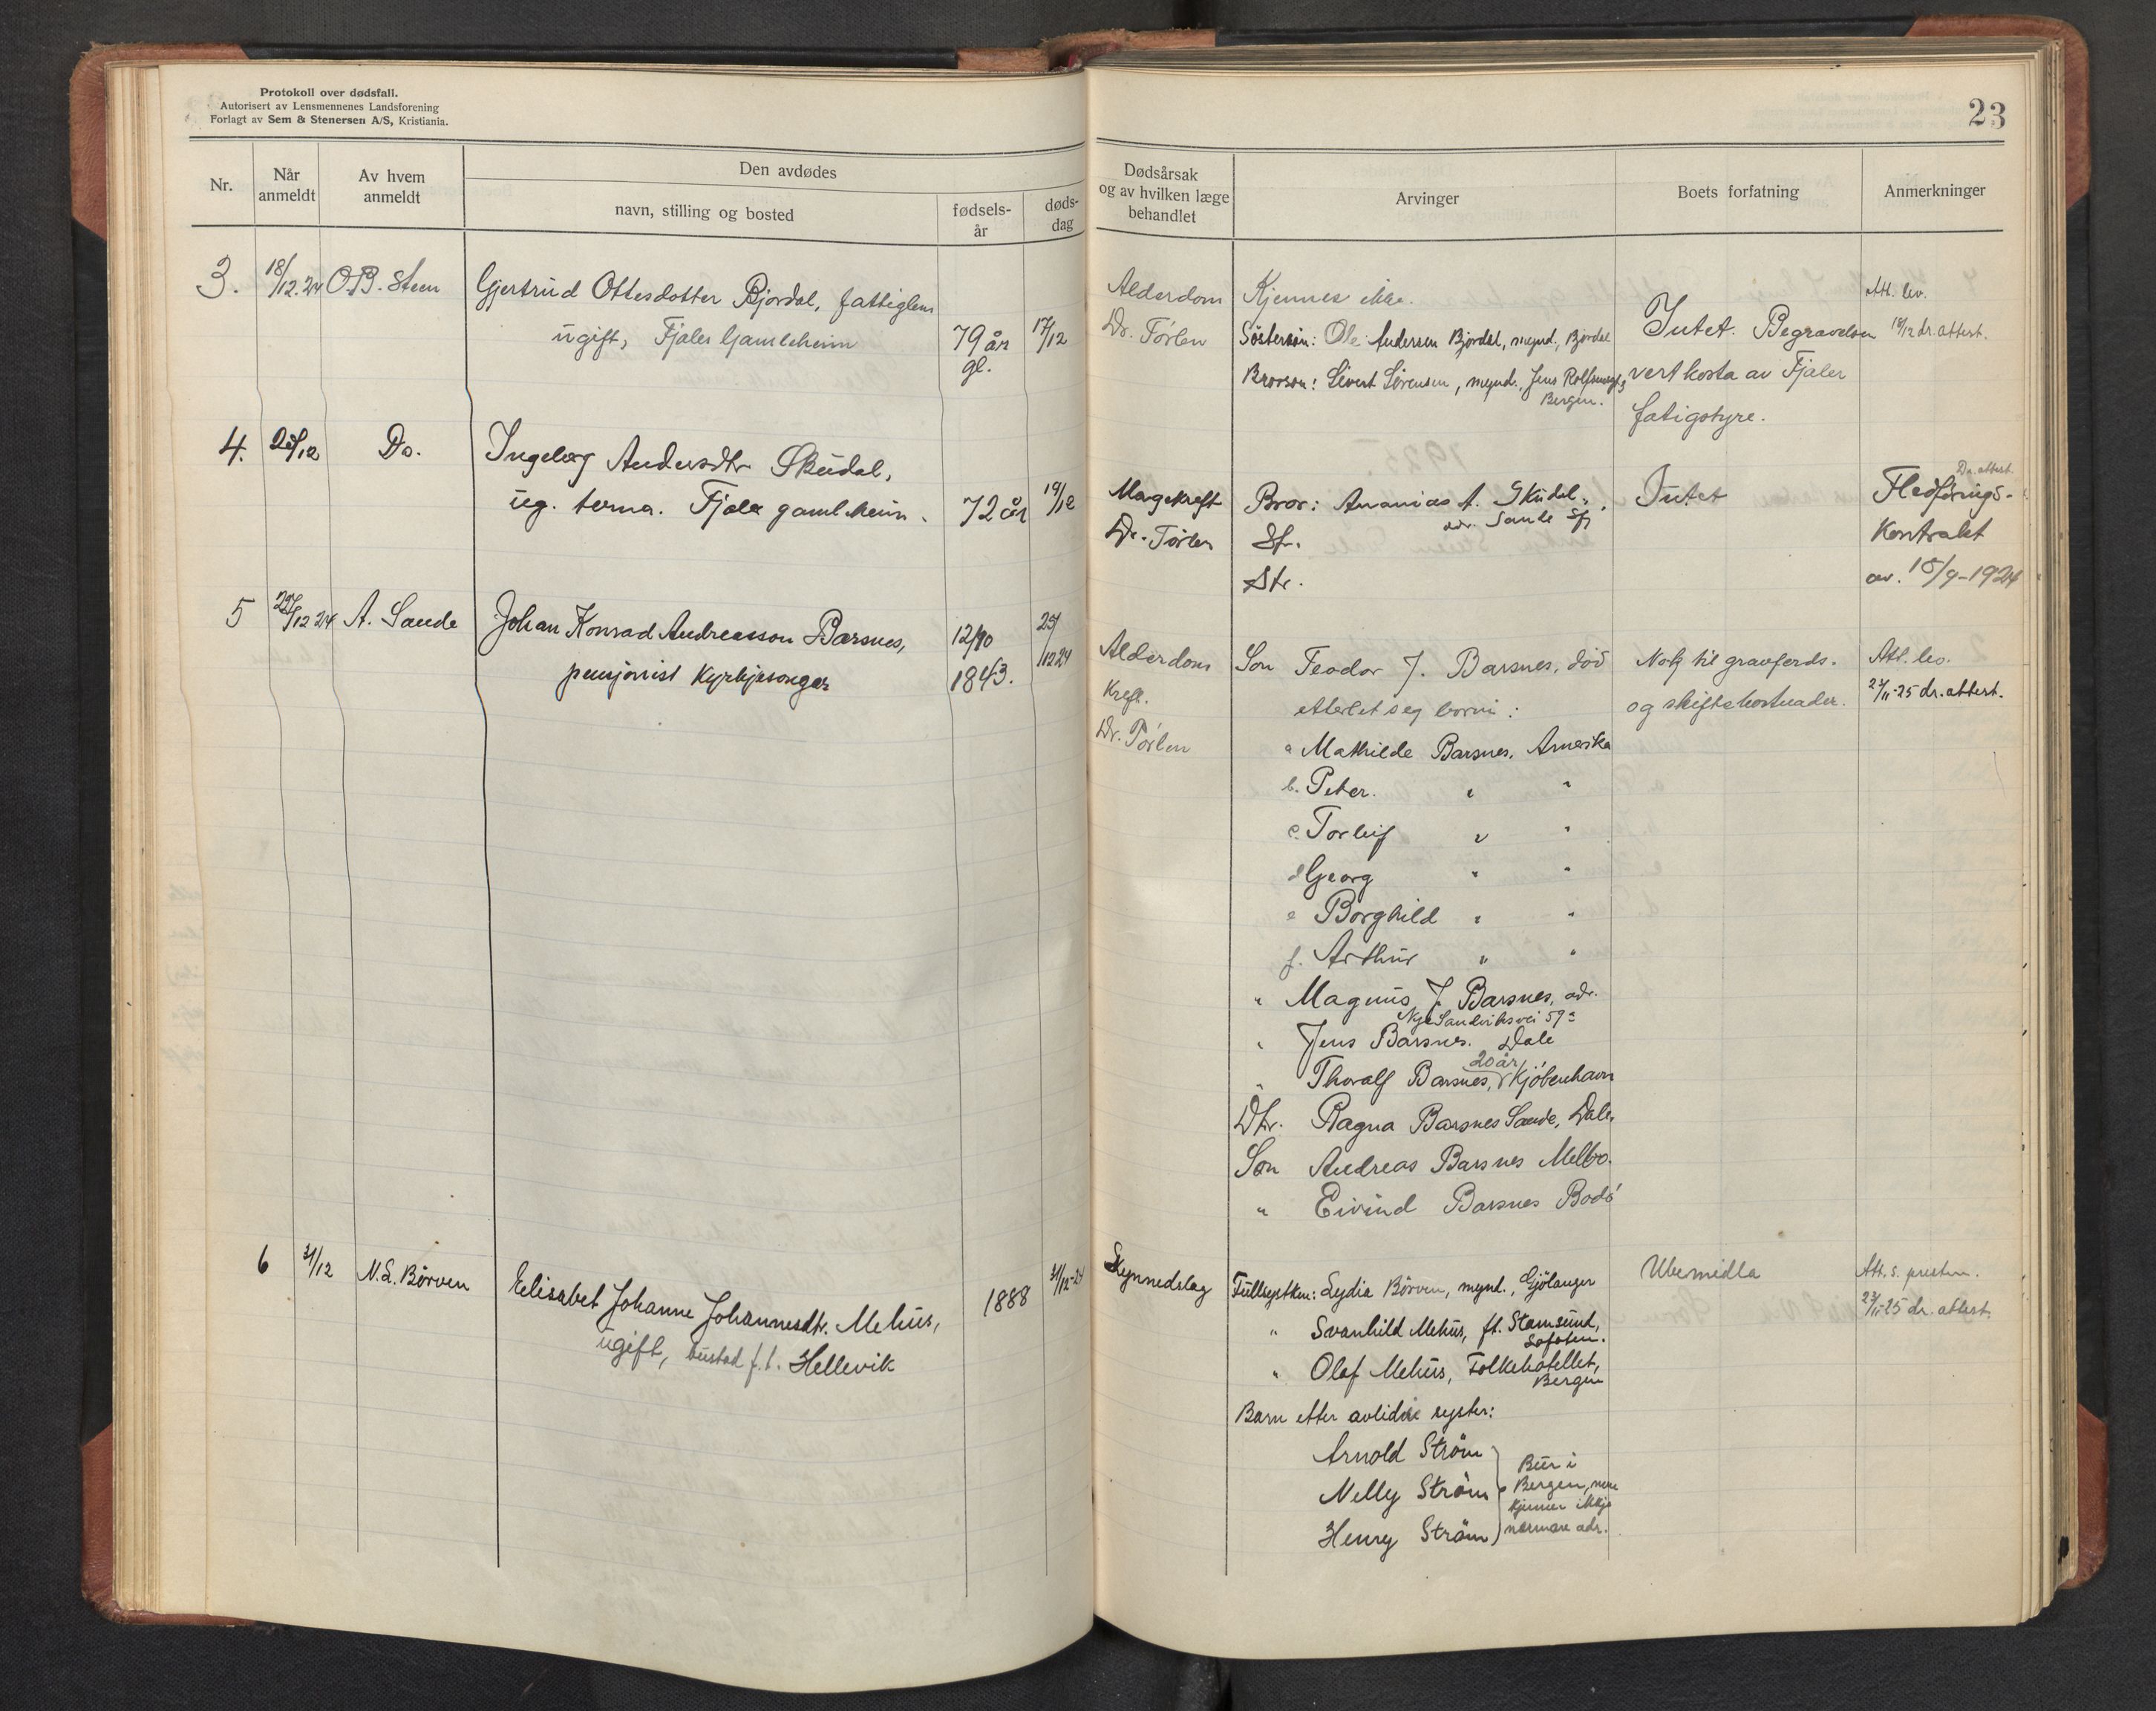 Protokoll over dødsfall.
Autorisert av Lensmennenes Landsforening
Forlagt av Sem & Stenersen A/S, Kristiania.
23
Nr.
Når anmeldt
Av hvem anmeldt
Den avdødes
navn, stilling og bosted
fødsels-år
døds-dag
Dødsårsak og av hvilken læge behandlet
Arvinger
Boets forfatning
Anmerkninger
3. 18/12.24 O.B. Steen Gjertrud Ottesdotter Bjordal, fattiglem
ugift, Fjaler Gamleheim 79 år 17/12
gl.
Alderdom
Dr. Tørlen
Kjennes ikke.
Søstersøn: Ole Andersen Bjordal, mynd., Bjordal
Brorson: Sivert Sørensen, mynd., Jens Rolfsensgt. 3
Bergen.
Intet. Begravelsen
vert kosta av Fjaler
fatigstyre.
Att. lev.
18/12 dr. attest.
4. Do. Ingeborg Andersdtr. Skudal,
ug. terna. Fjaler gamleheim. 72 år 19/12
Magekreft
Dr. Tørlen
Bror: Ananias A. Skudal,
adr. Sande Sfj.
St.
Str.
Intet
Dr. attest.
Fledførings-
Kontrakt
av. 18/9-1924
5 12 24 A. Sande Johan Konrad Andreasson Barsnes,
pensjonist Kyrkjesongar
12/10
1843.
25/12 24
Alderdom
Kreft.
Dr. Tørlen
Son Feodor J. Barsnes, död
etterlet seg born:
a Mathilde Barsnes, Amerika
b. Peter. " "
c. Torleif " "
d Georg " "
e Borghild " "
f. Arthur " "
" Magnus J. Barsnes, adr.
Nye Sandviksvei 59a
" Jens Barsnes. Dale
20 år
" Thoralf Barsnes, Kjöbenhavn
Dtr. Ragna Barsnes Sande, Dale.
Son Andreas Barsnes Melbo.
" Eivind Barsnes Bodö
Nok til gravferds-
og skiftekostnader.
Att. lev.
2/11-25 dr. attest.
6 31/12 N.L. Börven Elisabet Johanne Johannesdtr. Mehus,
ugift, bustad f.t. Hellevik
1888
31/12-24
Skynnedslag
Fullsystken: Lydia Börven, mynd., Gjölanger
" Svanhild Mehus, ft. Stamsund,
Lofoten.
" Olaf Mehus, Folkehotellet,
Bergen
Barn etter avlidne syster:
Arnold Ström
Nelly Ström
Henry Ström
Bur i
Bergen, men
kjenner ikkje
nærmare adr.
Ubemidla
Att. s. presten.
23/1-25 dr. attest.